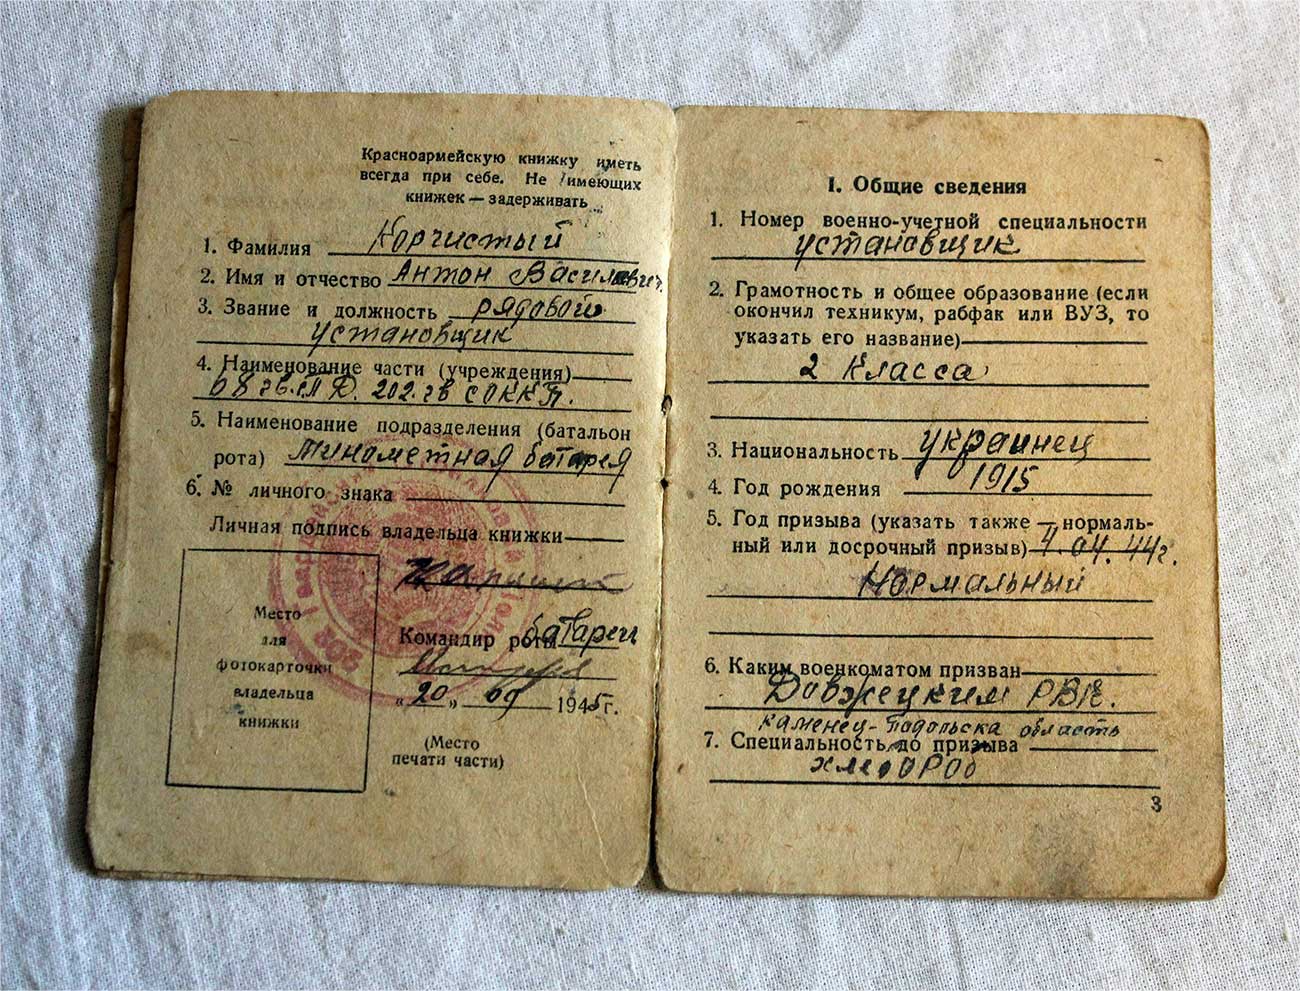 Красноармейскую книжку иметь
всегда при себе. Не имеющих
книжек — задерживать
1. Фамилия Корчистый
2. Имя и отчество Антон Василевич
3. Звание и должность рядовой
установщик
4. Наименование части (учреждения)
68 гв. СП Д. 202. гв СОККП.
5. Наименование подразделения (батальон
рота) Минометная батарея
6. № личного знака
Личная подпись владельца книжки
Место
для
фотокарточки
владельца
книжки
Командир роты батареи
"20" 09 1945 г.
(Место
печати части)
I. Общие сведения
1. Номер военно-учетной специальности
установщик
2. Грамотность и общее образование (если
окончил техникум, рабфак или ВУЗ, то
указать его название)
2 класса
3. Национальность украинец
4. Год рождения 1915
5. Год призыва (указать также — нормаль-
ный или досрочный призыв) 4.04.44г.
Нормальный
6. Каким военкоматом призван
РВК.
Каменец-Подольска область
7. Специальность до призыва
хлебороб
3